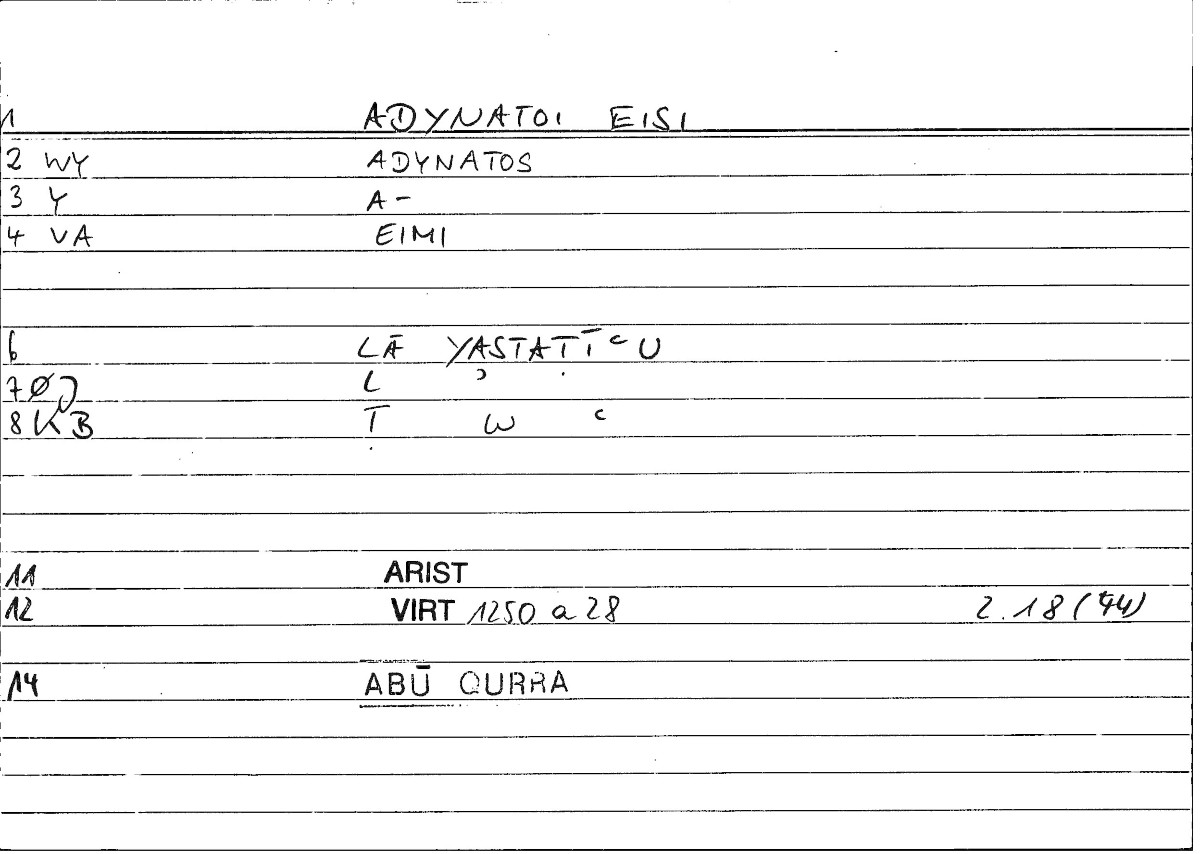 1 ADYNATOI EISI
2 WY ADYNATOS
3 Y A-
4 VA EIMI
6 LĀ YASTAṬĪʿU
7 ØJ L ʾ
8 KB Ṭ W ʿ
11 ARIST
12 VIRT 1250 a 28 2.18 (44)
14 ABŪ QURRA